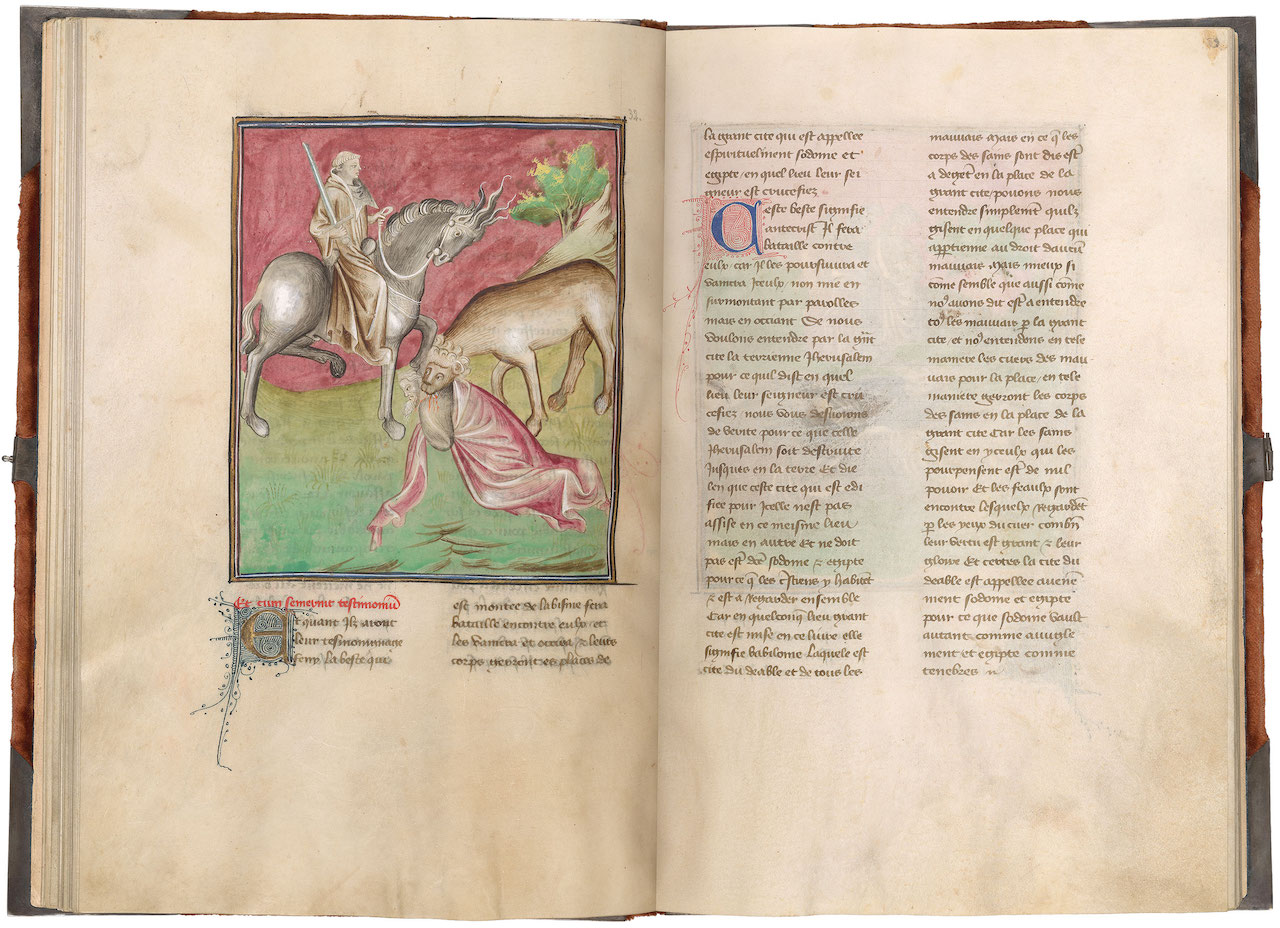 32.
Et cum finierint testimoniũ
Et quant Ilz auront
leur tesmoignage
feny la beste qui
est montee de labisme fera
bataille encontre eulx et
les vaincra et occira / et leurs
corps gerront es places de
33
la grant cite qui est appellee
espirituelment sodome et
egipte / en quel lieu leur sei
gneur est crucefiez
Ceste beste signifie
antecrist Il fera
bataille contre
eulx car Il les poursuiura et
vaincra Iceulx non mie en
surmontant par parolles
mais en occiant Se nous
voulons entendre par la grãt
cite la terrienne Iherusalem
pour ce quil dist en quel
lieu leur seigneur est cru
cefiez nous vous desuoions
de verite pour ce que celle
Iherusalem soit destruite
Iusques en la terre Et die
len que ceste cite qui est edi
fice pour Icelle nest pas
assise en ce meisme lieu
mais en autre Et ne doit
pas estre dce sodome et egipte
pour ce q̃ les cr̃stiens y habitẽt
et est a Regarder ensemble
Car en quelconq̃ lieu grant
cite est mise en ce liure elle
signifie babilonie Laquele est
cite du deable et de tous les
mauuais Mais en ce q̃ les
corps des sains sont dis estr̃
a degetr̃ en la place de la
grant cite / pouons nous
entendre simplemẽt quilz
gisent en quelque place qui
apptienne au droit daucun
mauuais Mais mieux si
cõme semble que aussi cõme
noꝰ auons dit est a entendre
toꝰ les mauuais p̱ la grant
cite / et noꝰ entendons en tele
maniere les cuers des mau-
uais pour la place / en tele
maniere gerront les corps
des sains en la place de la
grant cite Car les sains
gisent en yceulx qui les
pourpensent est de nul
pouoir Et les feaulx sont
encontre lesquelx Regardẽt
p̱ les yeux du cuer combiẽ
leur vertu est grant et leur
gloire Et certes la cite du
deable est appellee auenem̃
ment sodome et egipte
pour ce que sodome vault
autant comme auugle
ment et egipte comme
tenebres